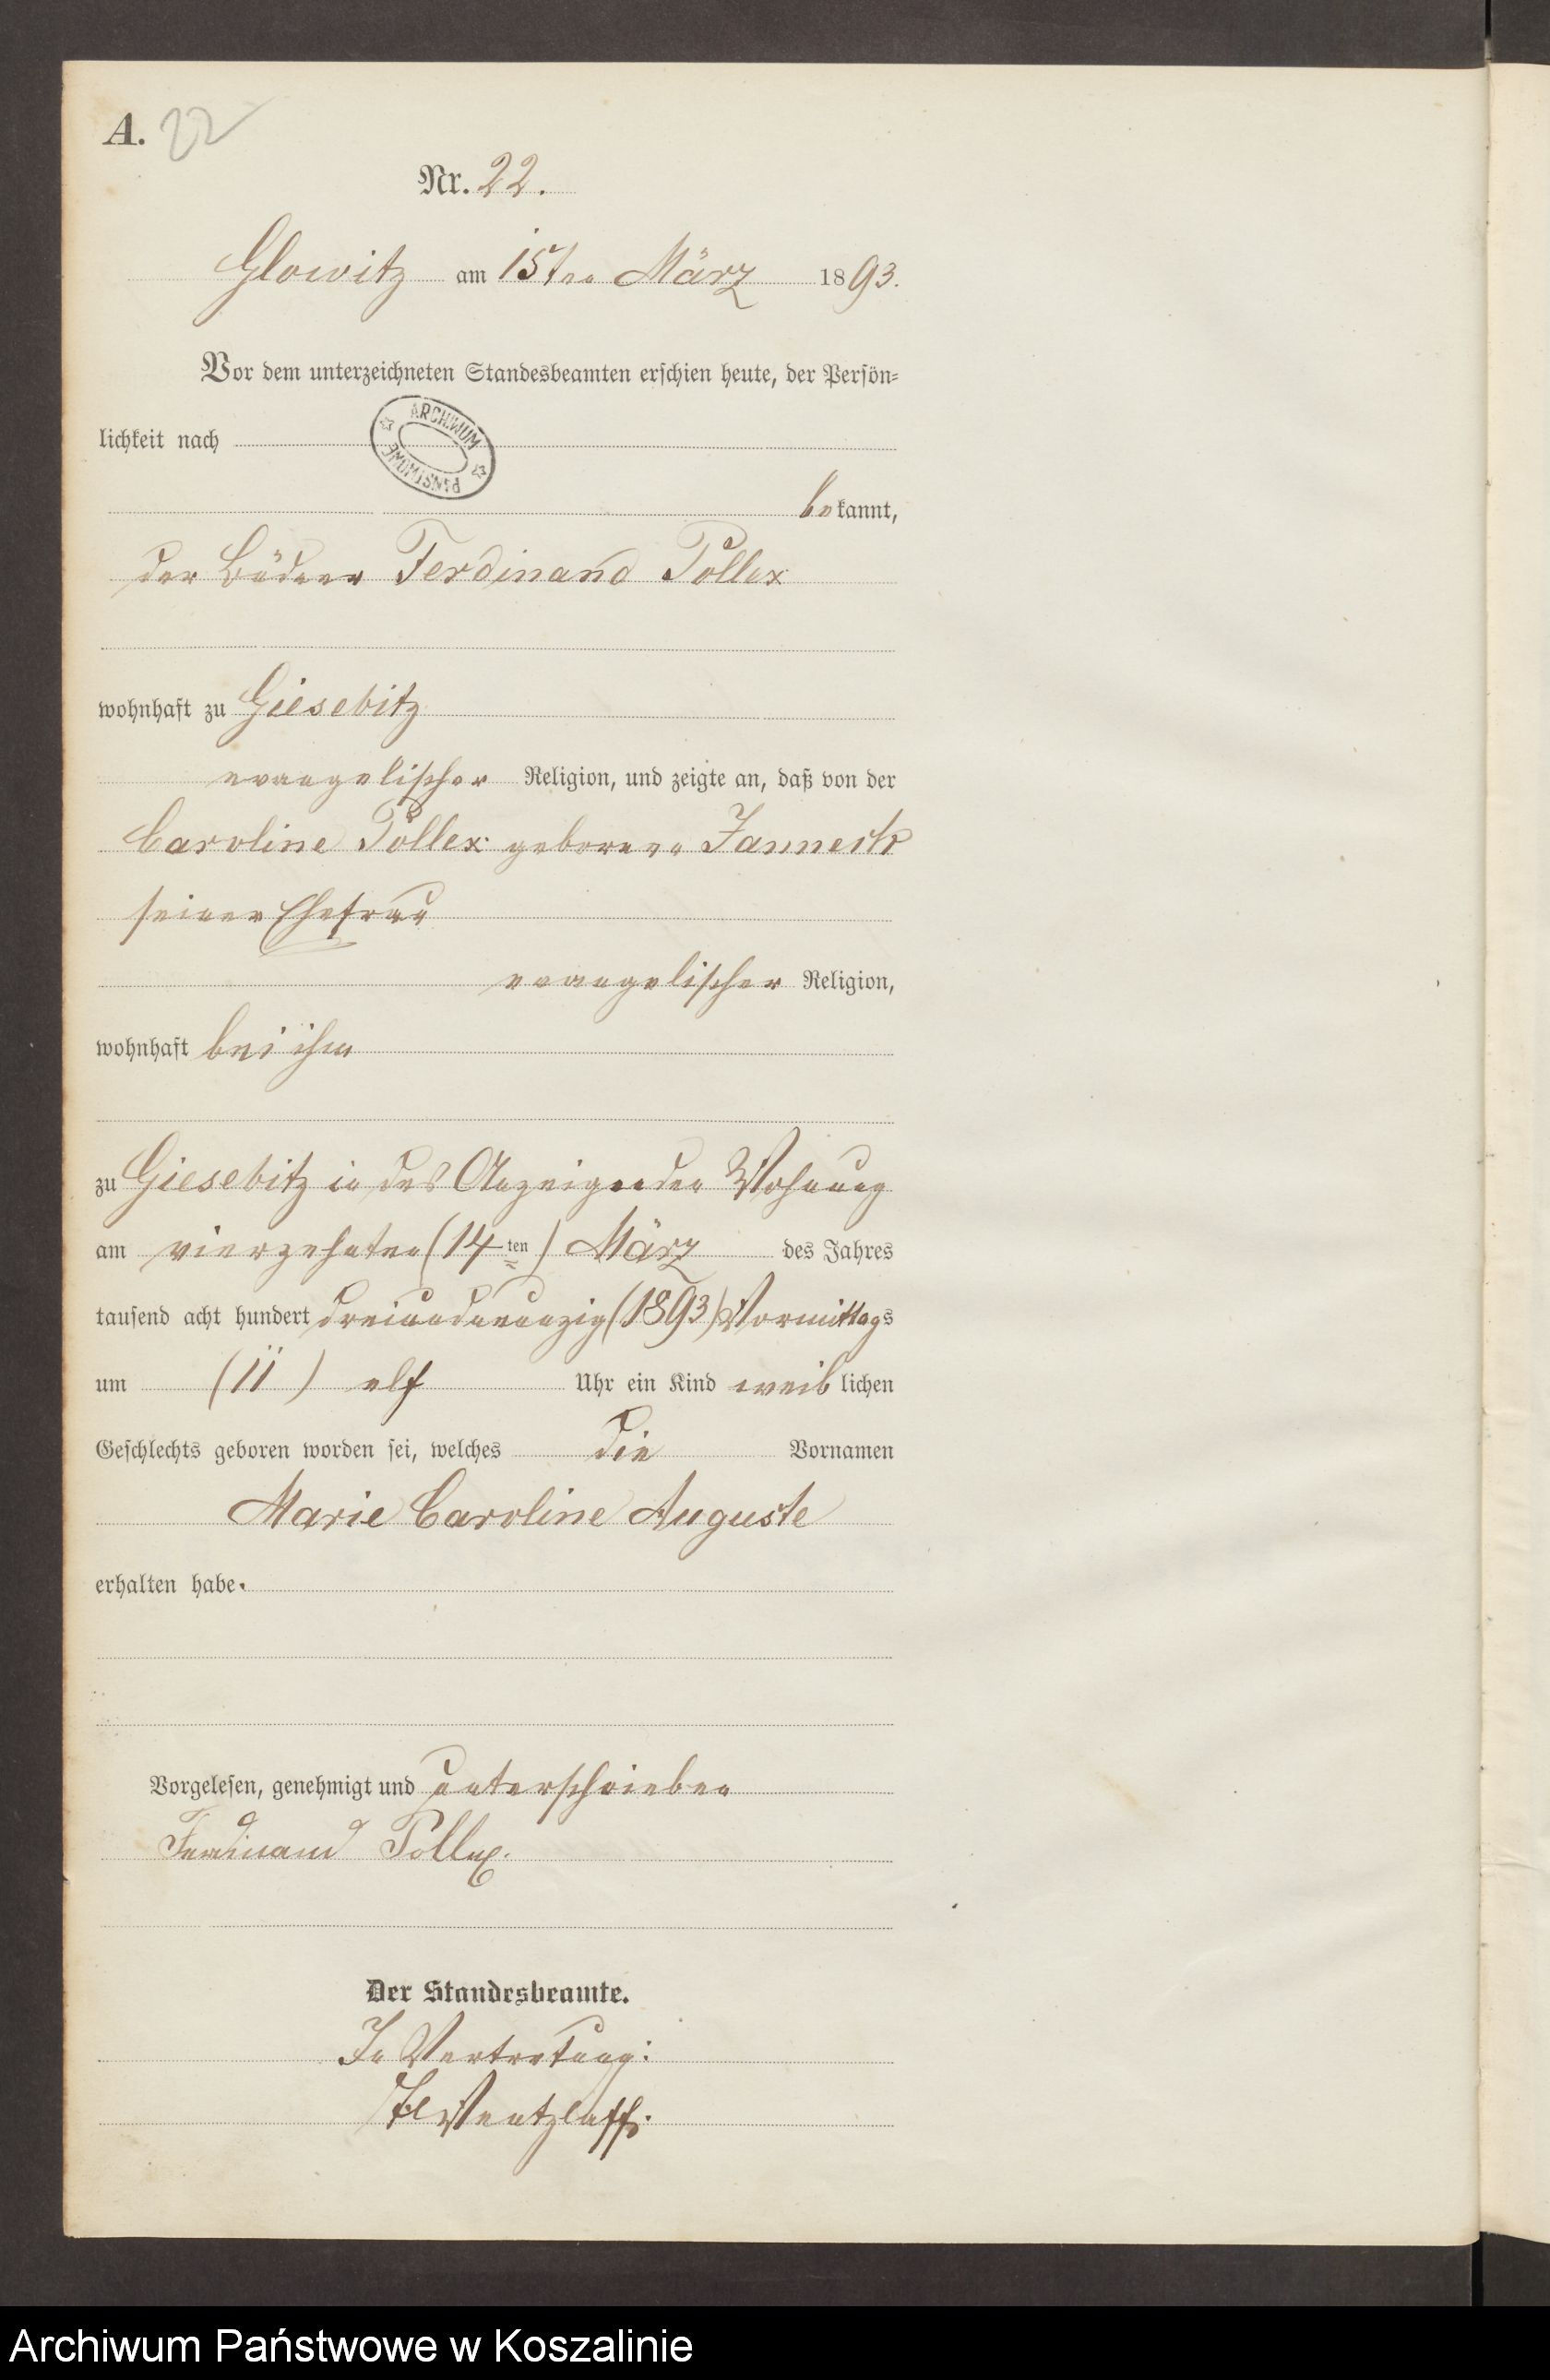 A. 22
Nr. 22.
Glowitz am 15ten März 1893.
Vor dem unterzeichneten Standesbeamten erschien heute, der Persön=
lichkeit nach
ARCHIWUM PAŃSTWOWE
bekannt,
der Büdner Ferdinand Pollex
wohnhaft zu Giesebitz
evangelischer Religion, und zeigte an, daß von der
Caroline Pollex geborene Janneck
seiner Ehefrau
evangelischer Religion,
wohnhaft bei ihm
zu Giesebitz in des Anzeigenden Wohnung
am vierzehnten (14ten) März des Jahres
tausend acht hundert dreiundneunzig (1893) Vormittags
um (11) elf Uhr ein Kind weiblichen
Geschlechts geboren worden sei, welches die Vornamen
Marie Caroline Auguste
erhalten habe.
Vorgelesen, genehmigt und unterschrieben
Ferdinand Pollex.
Der Standesbeamte.
In Vertretung:
Wentzlaff.
Archiwum Państwowe w Koszalinie